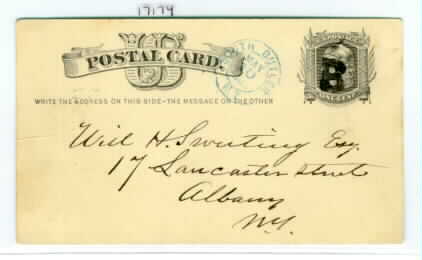 17174
US
POSTAL CARD.
WRITE THE ADDRESS ON THIS SIDE-THE MESSAGE ON THE OTHER
ONE CENT
B
Will H. Sweeting Esq.
17 Lancaster street
Albany
N.Y.